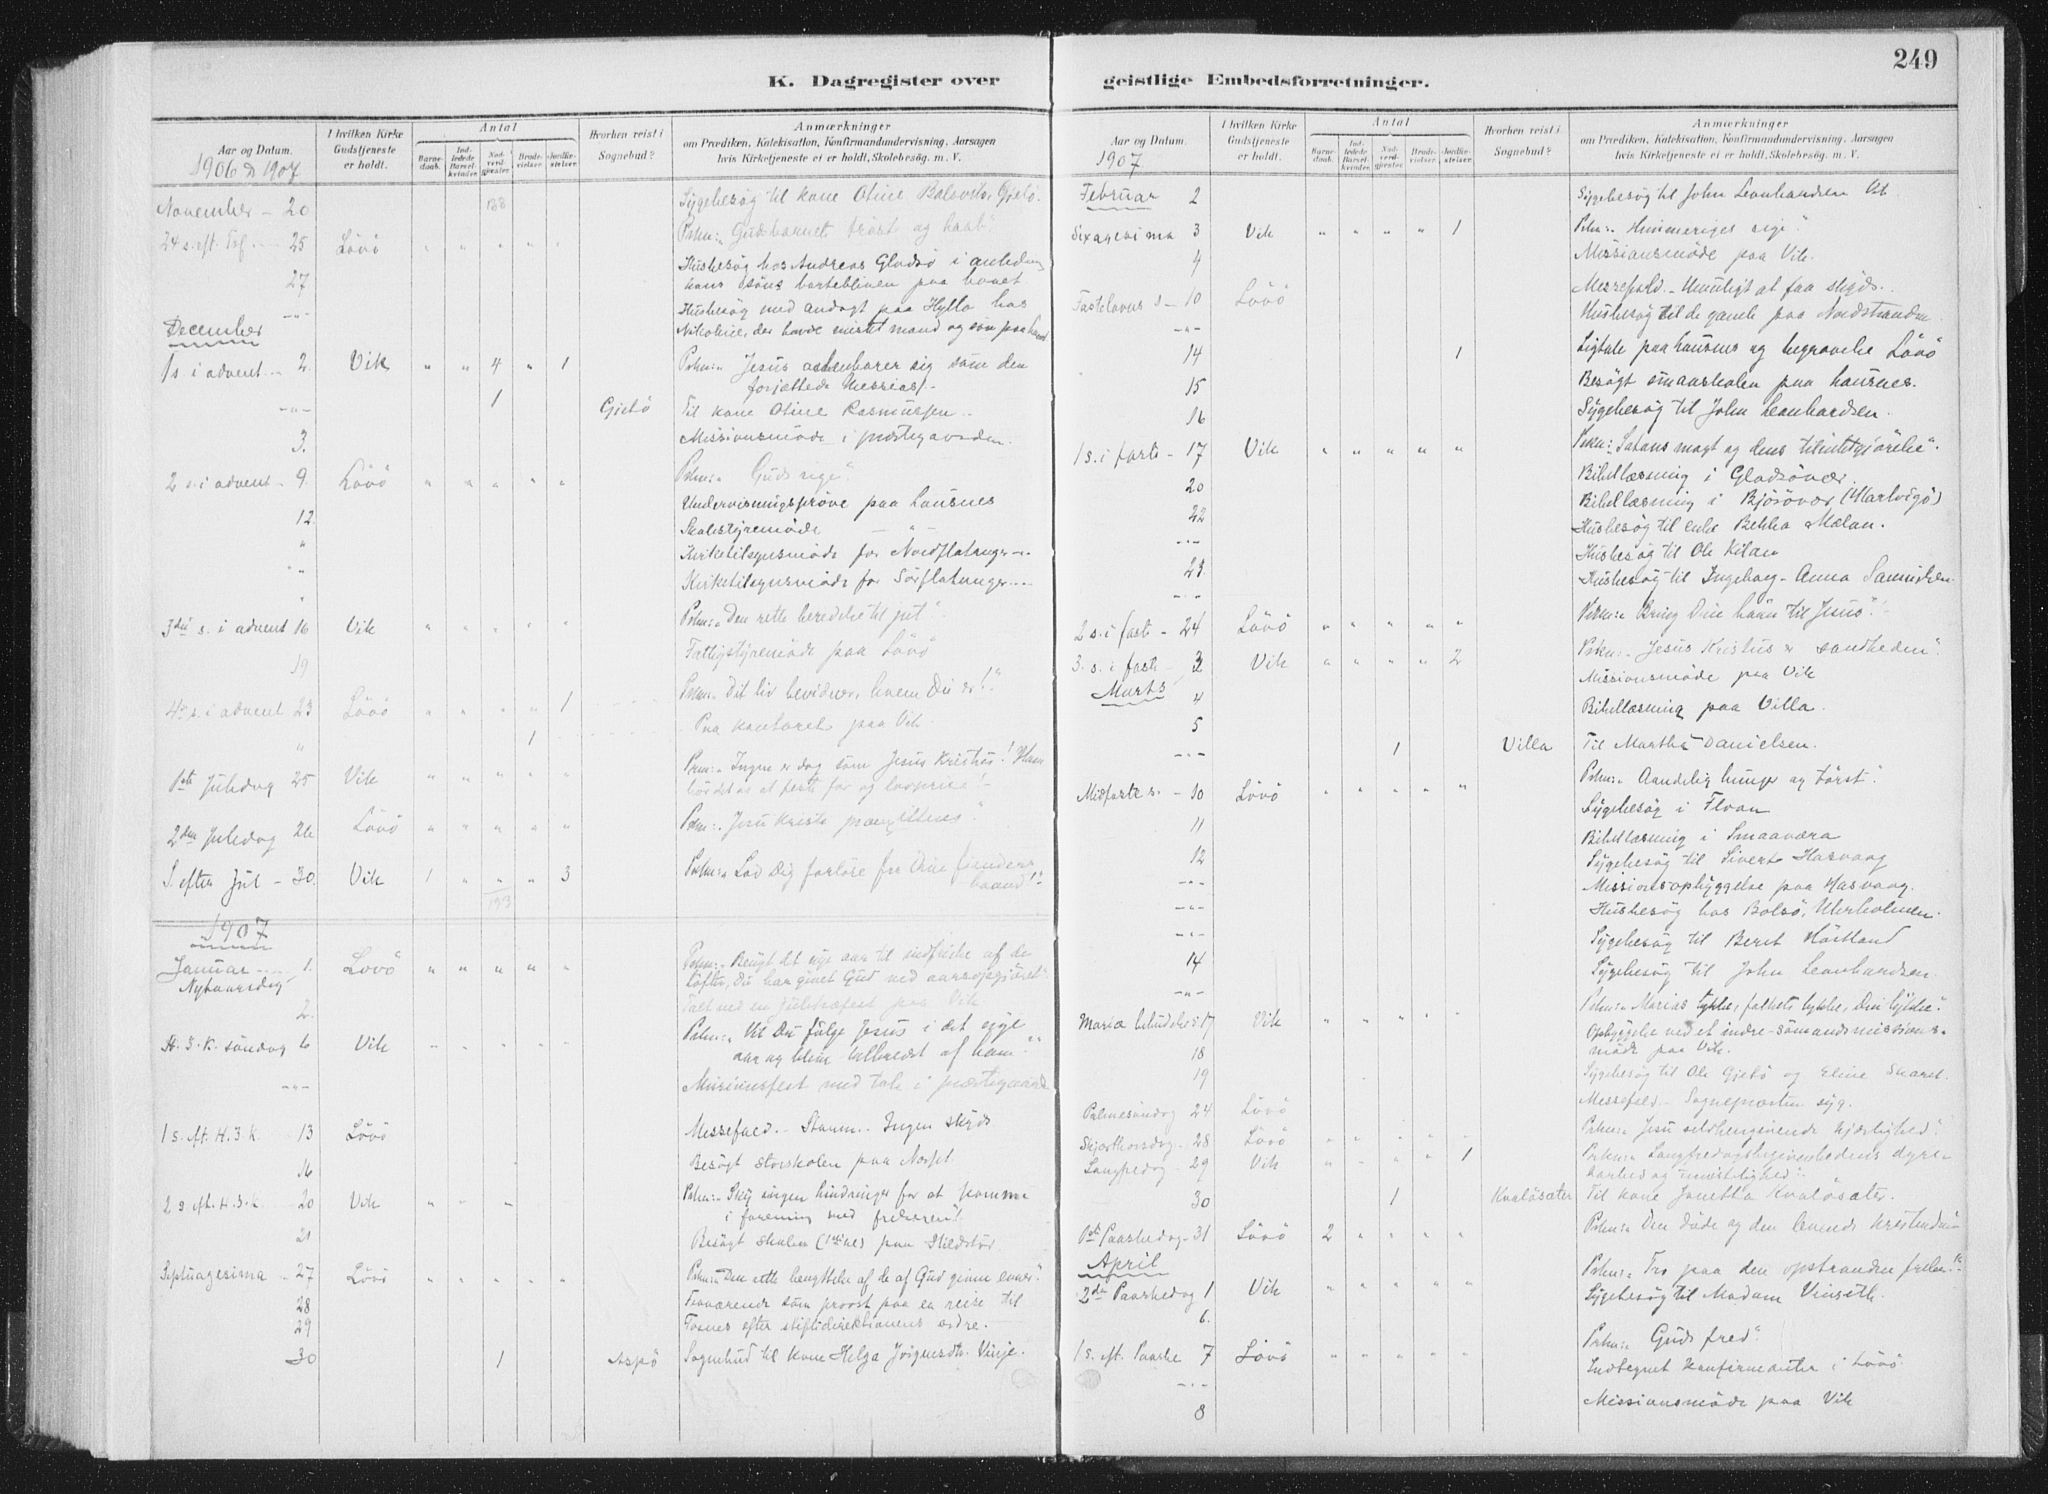 249
K. Dagregister over geistlige Embedsforretninger.
Aar og Datum.
I hvilken Kirke Gudstjeneste er holdt.
Antal
Barne-daab.
Ind-ledede Barsel-kvinder.
Nad-verd-gjester.
Brude-vielser.
Jordfæ-stelser.
Hvorhen reist i Sognebud?
Anmærkninger
om Prædiken, Katekisation, Konfirmandundervisning, Aarsagen
hvis Kirketjeneste ei er holdt, Skolebesøg. m. V.
1906 & 1907
November - 20 188 Sygebesøg til kone Oline Gjebö.
24 s. eft. Tref. 25 Lövö " " " " " Prkn: "Gudsbarnets tröst og haab."
27 Husbesøg hos Andreas Gladsö i anledn.
hans söns bortebliven paa havet
-"- Husbesøg med andagt paa Hylla hos
Nikoline, der havde mistet mand og sön paa havet
December
1 s. i advent - 2. Vik " " 4 " 1 Prkn: "Jesus aabenbarer sig som den
forjættede Messias".
-"- 1 Gjebö Til kone Oline Rasmussen.
3. Missionsmöde i præstegaarden.
2 s. i advent - 9. Lövö " " " " " Prkn: "Guds rige".
12. Undervisningspröve paa Lausnes
" Skolestyremöde -"-
" Kirketilsynsmöde for Nordflatanger
" Kirketilsynsmöde for Sörflatanger
3die s. i advent 16 Vik " " " " " Prkn: "Den rette beredelse til jul"
19 Fattigstyremöde paa Lövö
4de s. i advent 23 Lövö " " " " 1 Prkn: "Dit liv bevidner, hvem Du er!"
" 1 Paa kontoret paa Vik
1ste Juledag 25 Vik " " " " " Prkn: "Ingen er dog som Jesus Kristus! Ham
bör det os at feste for og lovprise!"
2den Juledag 26 Lövö " " " " " Prkn: "Jesu Kristi
S. efter Jul - 30. Vik 1 " " " 3 Prkn: "Lad Dig forlöse fra Dine fienders
haand!"
193
1907
Januar 1. Lövö " " " " " Prkn: "Benyt det nye aar til indfrielse af de
Nytaarsdag löfter, Du har givet Gud ved aarsopgjöret"
2. Talt ved en juletræfest paa Vik
H. 3. K. söndag 6 Vik " " " " " Prkn: "Vil Du fölge Jesus i det nye
aar og blive tilbedt af ham?"
-"- Missionsfest med tale i præstegaard
1 s. eft. H. 3. K. 13 Lövö Messefald. - Storm. - Ingen skyds
16 Besögt storskolen paa
2 s. eft. H. 3. K. 20 Vik " " " Prkn: "Sky ingen hindringer for at komme
i forening med frelseren".
21 Besögt skolen paa
Septuagesima - 27 Lövö " " " " " Prkn: "Den rette benyttelse af de af Gud givne evner".
28 Fraværende som provst paa en reise til
29 Fosnes efter stiftsdirektionens ordre.
30 1 Aspö Sognebud til kone Helga Jörgensdtr. Vinje.
Aar og Datum.
I hvilken Kirke Gudstjeneste er holdt.
Antal
Barne-daab.
Ind-ledede Barsel-kvinder.
Nad-verd-gjester.
Brude-vielser.
Jordfæ-stelser.
Hvorhen reist i Sognebud?
Anmærkninger
om Prædiken, Katekisation, Konfirmandundervisning, Aarsagen
hvis Kirketjeneste ei er holdt, Skolebesøg. m. V.
1907
Februar 2 Sygebesøg til John Leonhardsen
Sexagesima 3 Vik " " " " 1 Prkn: "Himmeriges rige".
4 Missionsmöde paa Vik.
Fastelavns s - 10 Lövö Messefald. - Umuligt at faa skyds.
-"- Husbesøg til de gamle paa Nordstranden
14 1 Ligtale paa Lausnes og begravelse Lövö
15 Besögt smaaskolen paa Lausnes.
16 Sygebesøg til John Leonhardsen.
1 s. i faste - 17 Vik " " " " " Prkn: "Satans magt og dens tilintetgjörelse".
20 Bibellæsning i Gladsövær.
22 Bibellæsning i Björövær
-"- Husbesøg til enke Bekka Mælan.
23. Husbesøg til Ole Kilan
-"- Husbesøg til Ingeborg-Anna Samuelsen
2 s. i faste - 24 Lövö " " " " " Prkn: "Bring Dine baan til Jesus".
3. s. i faste - 3 Vik " " " " 2 Prkn: "Jesus Kristus er sandheden".
Marts 4 Missionsmöde paa Vik
5 Bibellæsning paa Villa.
-"- 1 Villa Til Martha Danielsen.
Midfaste s. - 10 Lövö " " " " " Prkn: "Aandelig hunger og törst".
11 Sygebesøg i Floan
12 Bibellæsning i Smaaværa
-"- Sygebesøg til Sivert Hasvaag
-"- Missionsopbyggelse paa Hasvaag.
-"- Husbesøg hos Bolsö, Uterholmen.
14 Sygebesøg til Berit
-"- Sygebesøg til John Leonhardsen.
Mariæ bebudelses 17 Vik " " " " " Prkn: "Marias lykke, folkets lykke, Din lykke".
18 Opbyggelse ved et indre-sömandsmissions-
möde paa Vik.
19 Sygebesøg til Ole Gjebö og Eline
Palmesöndag 24 Lövö Messefald - Sognepresten syg.
Skjærthorsdag - 28 Lövö " " " " " Prkn: "Jesu selvhengivende kjærlighed".
Langfredag - 29 Vik " " " " 1 Prkn: "Langfredagsbegivenhedens dyre-
barhed og
30 1 Kvalösæter Til kone Janetta Kvalösæter.
1ste Paaskedag - 31 Lövö 2 " " " " Prkn: "Den döde og den levende kristendom"
April
2den Paaskedag 1 Vik " " " " " Prkn: "Tro paa den opstandne frelser."
6. Sygebesøg til Madam
1 s. eft. Paaske 7 Lövö " " " " " Prkn: "Guds fred".
-"- Indtegnet konfirmanter i Lövö
8 Missionsmöde paa Vik